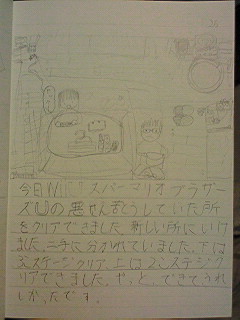 今日WiiUスーパーマリオブラザー
ズUの悪せん苦とうしていた所
をクリアできました。新しい所にいけ
ました。二手に分かれていました。下は
ステージクリア、上は2こステージク
リアできました。やっと、できてうれ
しかったです。